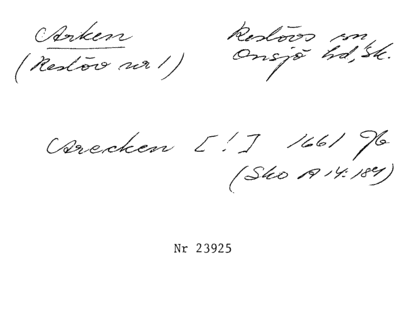 Arken Reslövs sn,
(Reslöv nr 1) Onsjö hd, Sk.
Arecken [!] 1661 Jb
(Sko A 14:184)
Nr 23925